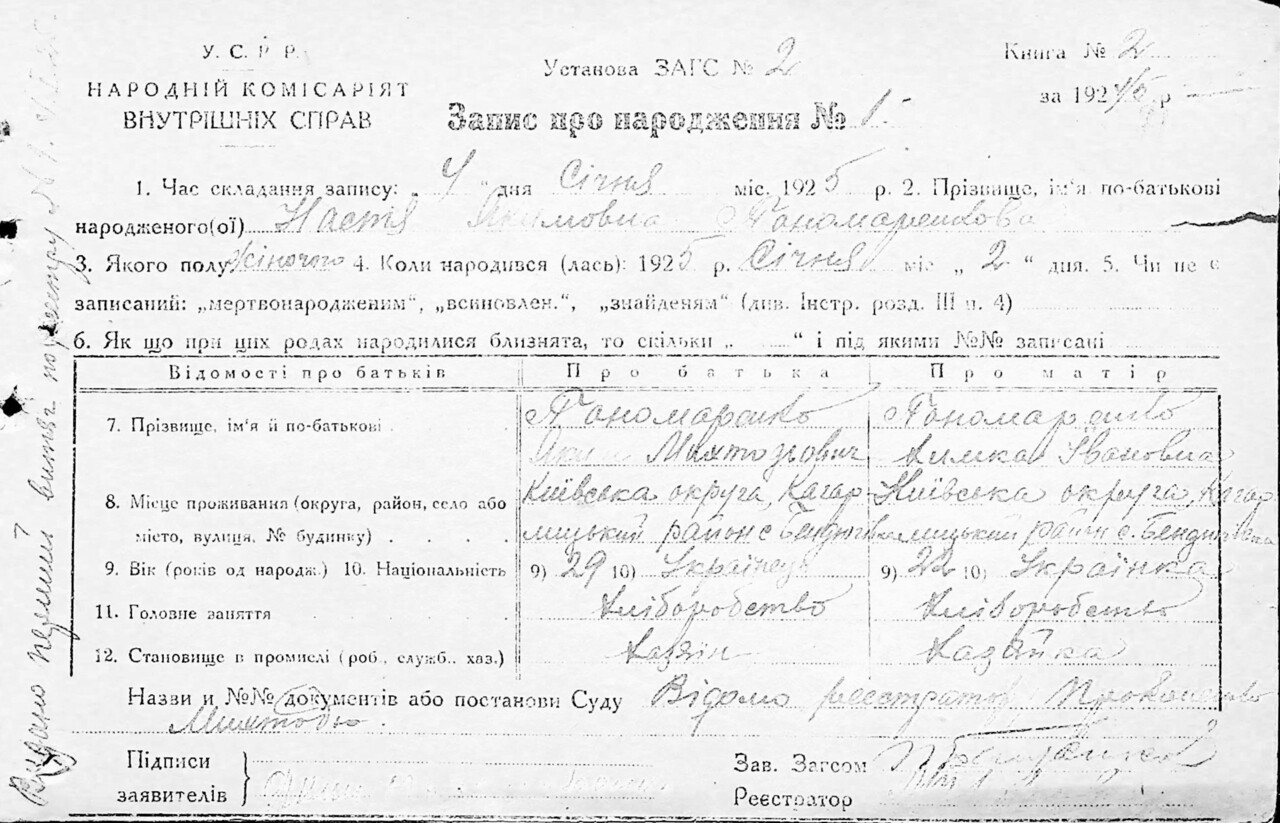 У. С. Р. Р.
НАРОДНІЙ КОМІСАРІЯТ
ВНУТРІШНІХ СПРАВ
Установа ЗАГС № 2
Книга № 2
за 1924/5 р
Запис про народження № 1.
1. Час складання запису: „ 4 “ дня Січня міс. 1925 р. 2. Прізвище, ім'я по-батькові
народженого(ої) Настя Якимовна Пономаренкова
3. Якого полу жіночого 4. Коли народився (лась): 1925 р. Січня міс „ 2 “ дня. 5. Чи не є
записаний: „мертвонародженим“, „всиновлен.“, „знайденям“ (див. Інстр. розд. III п. 4)
6. Як що при цих родах народилися близнята, то скільки „ “ і під якими №№ записані
Відомості про батьків Про батька Про матір
7. Прізвище, ім'я й по-батькові Пономаренко Пономаренко
Яким Івановна
8. Місце проживання (округа, район, село або Київська округа, Кагар- Київська округа, Кагар
місто, вулиця, № будинку) лицький район с лицький район с.
9. Вік (років од народж.) 10. Національність 9) 29 10) Українець 9) 22 10) Українка
11. Головне заняття Хліборобство Хліборобство
12. Становище в промислі (роб., служб.. хаз.) Хазяін Хазяйка
Назви и №№ документів або постанови Суду Відомо реєстратор
Підписи
заявителів
Зав. Загсом
Реєстратор
Видано первий витяг по реєстру № 1.